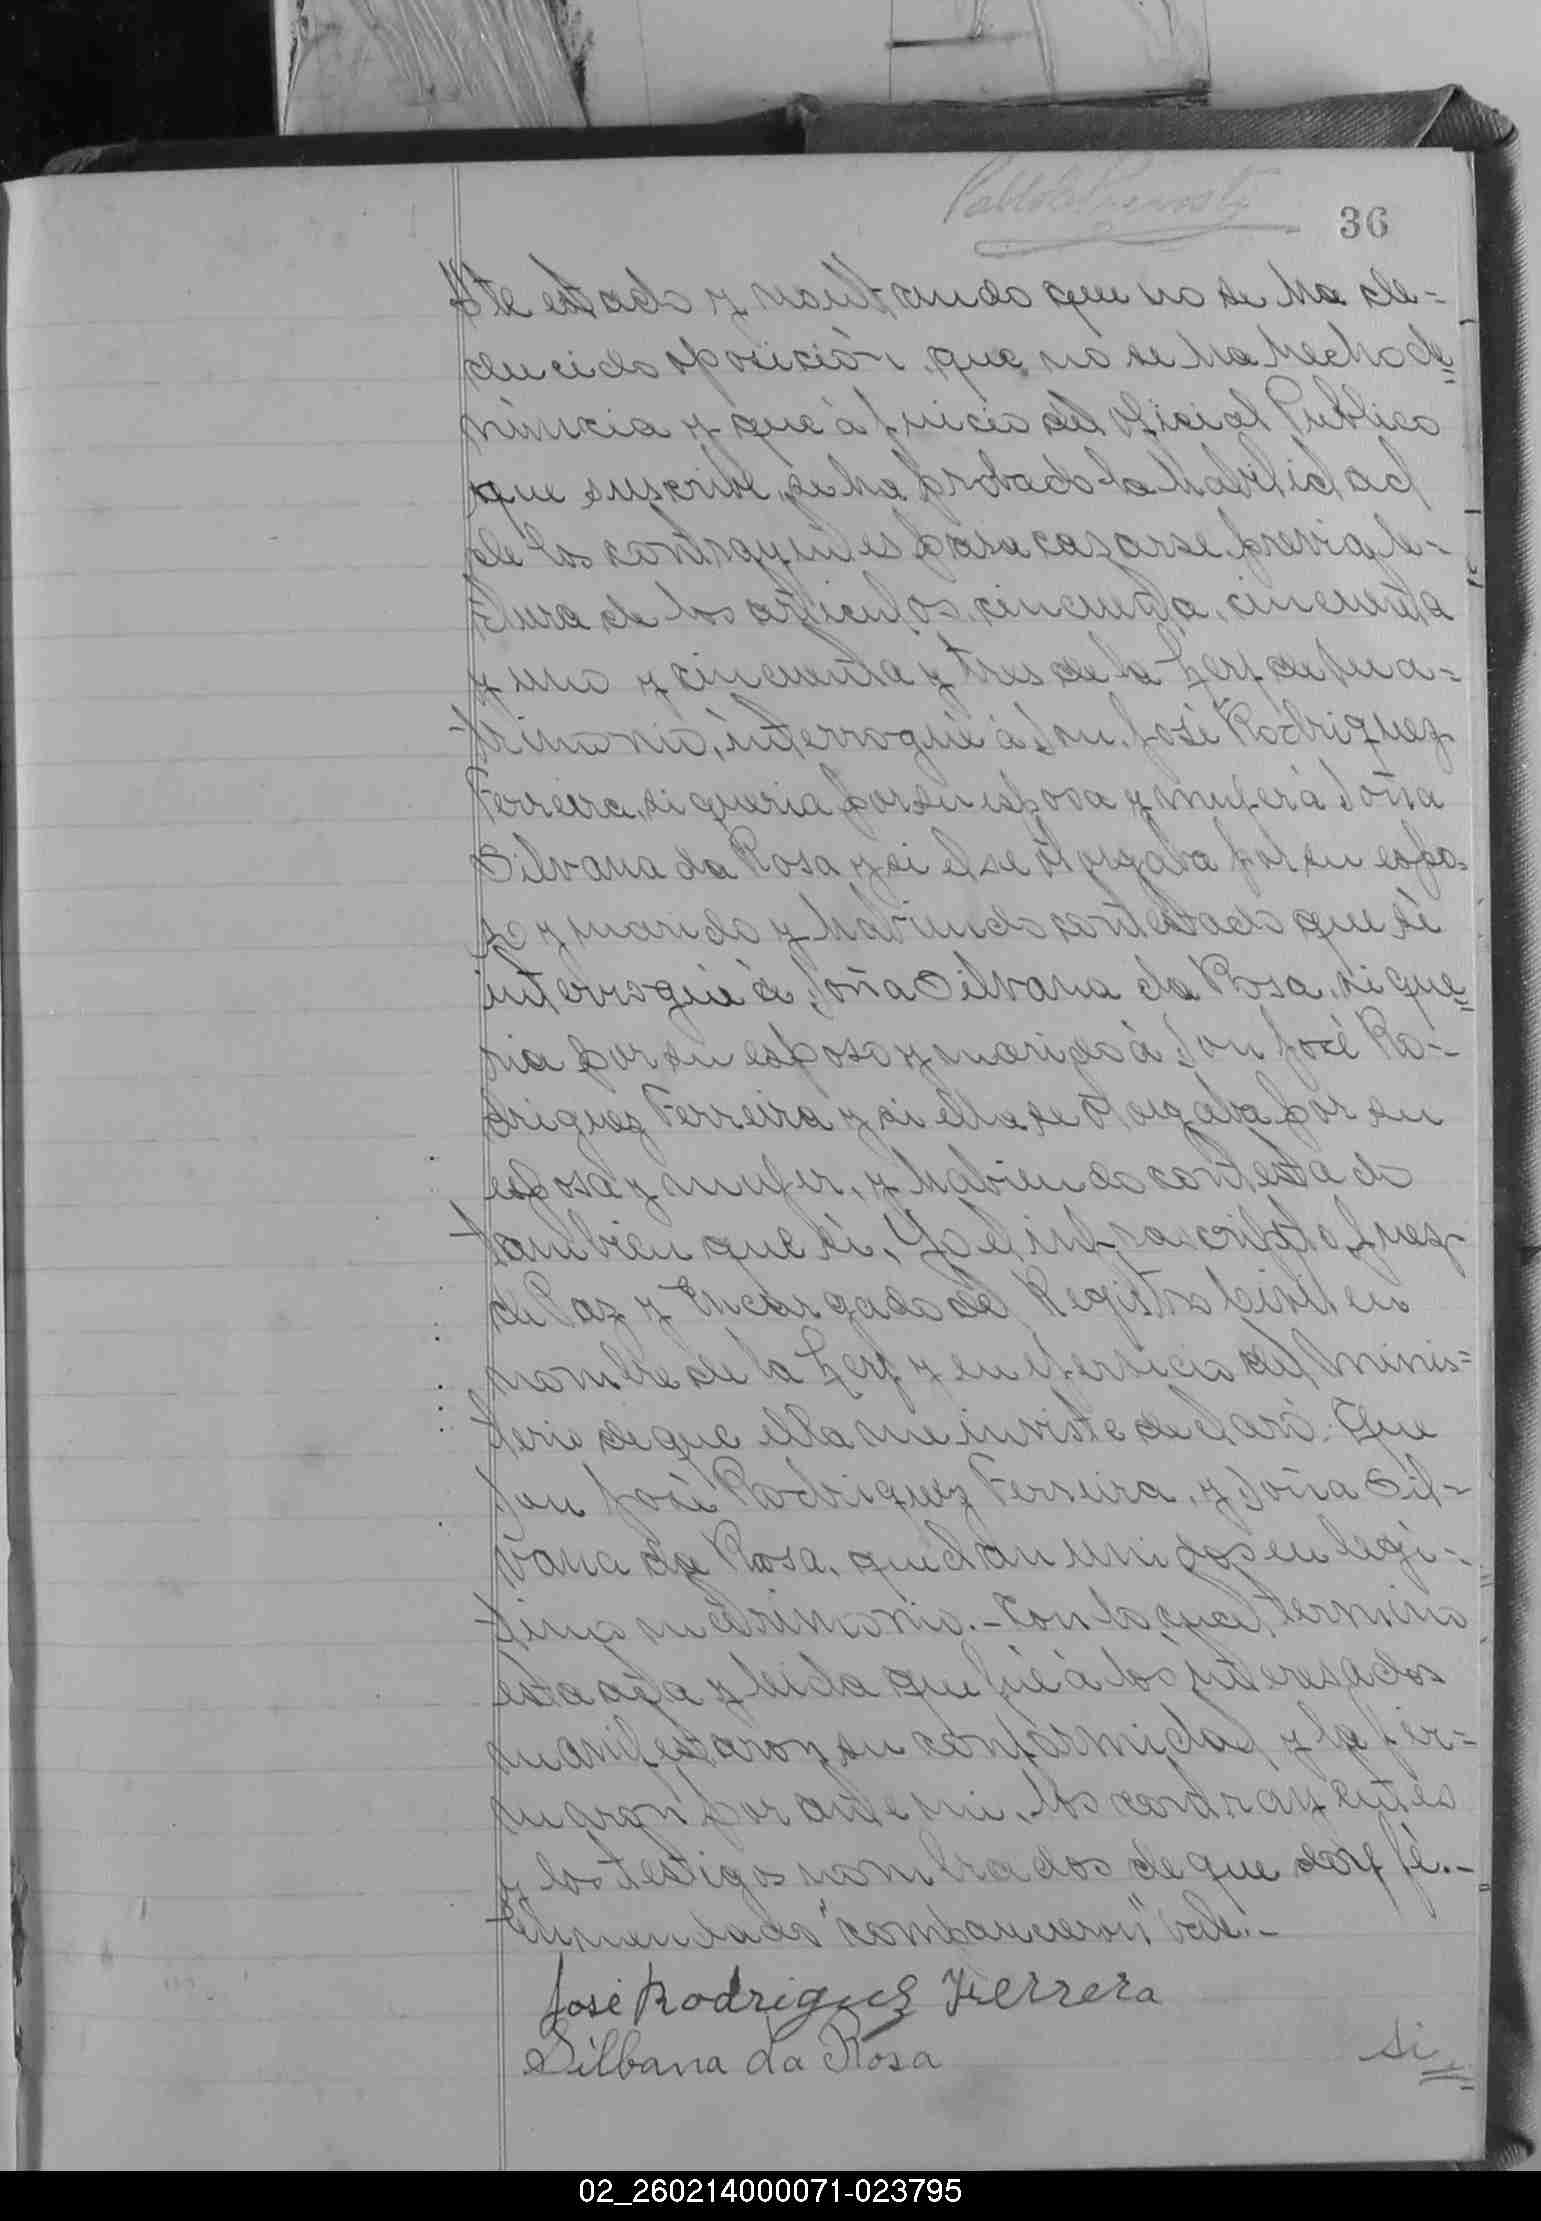 36
te estado y resultando que no se ha de=
ducido oposición, que no se ha hecho de=
núncia y que á juicio del Oficial Publico
que suscribe, se ha probado la habilidad
de los contrayentes para cazarse, previa le=
tura de los articulos, cincuenta, cincuenta
y uno y cincuenta y tres de la Ley de Ma=
trimonio, interrogué á Don José Rodriguez
Ferreira, si queria por su esposa y mujer á Doña
Silvana da Rosa y si el se otorgaba por su espo=
so y marido y habiendo contestado que sí
interrogué á Doña Silvana da Rosa, si que=
ria por su esposo y marido á Don José Ro=
driguez Ferreira y si ella se otorgaba por su
esposa y mujer, y habiendo contestado
tambien que sí, Yo el infrascripto Juez
de Paz y Encargado del Registro Civil en
nombre de la Ley y en ejercicio del minis=
terio de que ella me inviste declaró: Que
Don José Rodriguez Ferreira, y Doña Sil=
vana da Rosa, quedan unidos en legi=
timo matrimonio.- Con lo cual termino
esta acta y leida que fué á los interesados
manifestaron su conformidad y la fir=
maron por ante mi, los contrayentes
y los testigos nombrados de que doy fé.-
Enmendado "comparecieron" vale.-
José Rodriguez Ferrera
Silbana da Rosa
si
02_260214000071-023795